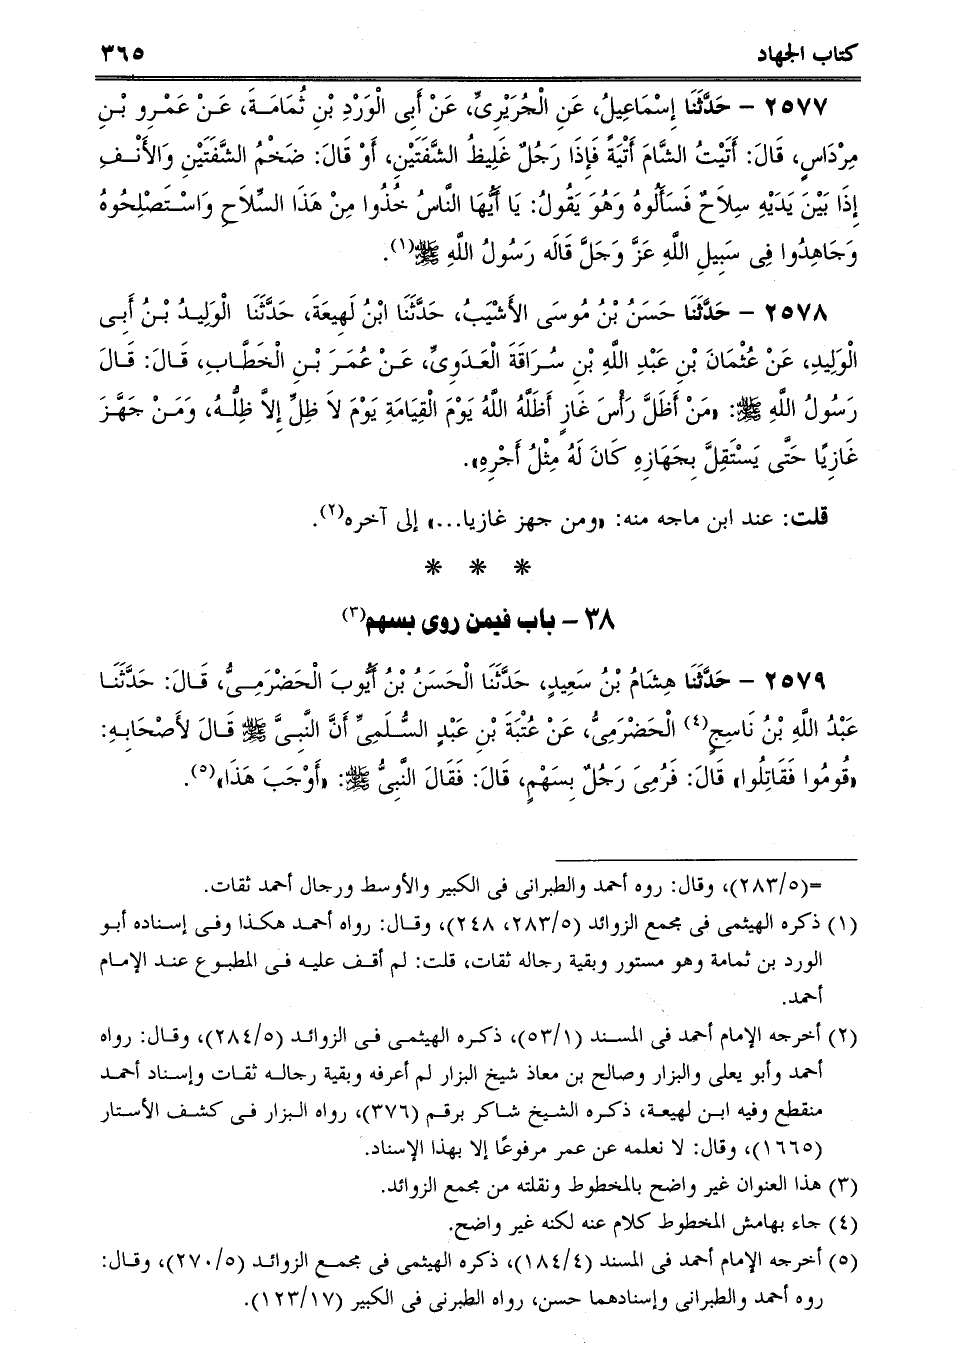 كتاب الجهاد ٣٦٥
٢٥٧٧ – حَدَّثَنَا إِسْمَاعِيلُ، عَنِ الْجُرَيْرِىِّ، عَنْ أَبِى الْوَرْدِ بْنِ ثُمَامَةَ، عَنْ عَمْرِو بْنِ
مِرْدَاسٍ، قَالَ: أَتَيْتُ الشَّامَ أَتْيَةً فَإِذَا رَجُلٌ غَلِيظُ الشَّفَتَيْنِ، أَوْ قَالَ: ضَخْمُ الشَّفَتَيْنِ وَالأَنْفِ
إِذَا بَيْنَ يَدَيْهِ سِلَاحٌ فَسَأَلُوهُ وَهُوَ يَقُولُ: يَا أَيُّهَا النَّاسُ خُذُوا مِنْ هَذَا السِّلَاحِ وَاسْتَصْلِحُوهُ
وَجَاهِدُوا فِى سَبِيلِ اللَّهِ عَزَّ وَجَلَّ قَالَه رَسُولُ اللَّهِ ﷺ(١).
٢٥٧٨ – حَدَّثَنَا حَسَنُ بْنُ مُوسَى الأَشْيَبُ، حَدَّثَنَا ابْنُ لَهِيعَةَ، حَدَّثَنَا الْوَلِيدُ بْنُ أَبِى
الْوَلِيدِ، عَنْ عُثْمَانَ بْنِ عَبْدِ اللَّهِ بْنِ سُرَاقَةَ الْعَدَوِىِّ، عَنْ عُمَرَ بْنِ الْخَطَّابِ، قَالَ: قَالَ
رَسُولُ اللَّهِ ﷺ: «مَنْ أَظَلَّ رَأْسَ غَازٍ أَظَلَّهُ اللَّهُ يَوْمَ الْقِيَامَةِ يَوْمَ لاَ ظِلِّ إِلاَّ ظِلُّهُ، وَمَنْ جَهَّزَ
غَازِيًا حَتَّى يَسْتَقِلَّ بِجَهَازِهِ كَانَ لَهُ مِثْلُ أَجْرِهِ».
قلت: عند ابن ماجه منه: «ومن جهز غازيا...» إلى آخره(٢).
* * *
٣٨ – باب فيمن روى بسهم(٣)
٢٥٧٩ – حَدَّثَنَا هِشَامُ بْنُ سَعِيدٍ، حَدَّثَنَا الْحَسَنُ بْنُ أَيُّوبَ الْحَضْرَمِىُّ، قَالَ: حَدَّثَنَا
عَبْدُ اللَّهِ بْنُ نَاسِجٍ(٤) الْحَضْرَمِىُّ، عَنْ عُتْبَةَ بْنِ عَبْدٍ السُّلَمِىِّ أَنَّ النَّبِىَّ ﷺ قَالَ لأَصْحَابِهِ:
«قُومُوا فَقَاتِلُوا» قَالَ: فَرُمِىَ رَجُلٌ بِسَهْمٍ، قَالَ: فَقَالَ النَّبِىُّ ﷺ: «أَوْجَبَ هَذَا»(٥).
=(٢٨٣/٥)، وقال: روه أحمد والطبرانى فى الكبير والأوسط ورجال أحمد ثقات.
(١) ذكره الهيثمى فى مجمع الزوائد (٢٨٣/٥، ٢٤٨)، وقال: رواه أحمد هكذا وفى إسناده أبو
الورد بن ثمامة وهو مستور وبقية رجاله ثقات، قلت: لم أقف عليه فى المطبوع عند الإمام
أحمد.
(٢) أخرجه الإمام أحمد فى المسند (٥٣/١)، ذكره الهيثمى فى الزوائد (٢٨٤/٥)، وقال: رواه
أحمد وأبو يعلى والبزار وصالح بن معاذ شيخ البزار لم أعرفه وبقية رجاله ثقات وإسناد أحمد
منقطع وفيه ابن لهيعة، ذكره الشيخ شاكر برقم (٣٧٦)، رواه البزار فى كشف الأستار
(١٦٦٥)، وقال: لا نعلمه عن عمر مرفوعًا إلا بهذا الإسناد.
(٣) هذا العنوان غير واضح بالمخطوط ونقلته من مجمع الزوائد.
(٤) جاء بهامش المخطوط كلام عنه لكنه غير واضح.
(٥) أخرجه الإمام أحمد فى المسند (١٨٤/٤)، ذكره الهيثمى فى مجمع الزوائد (٢٧٠/٥)، وقال:
روه أحمد والطبرانى وإسنادهما حسن، رواه الطبرنى فى الكبير (١٢٣/١٧).